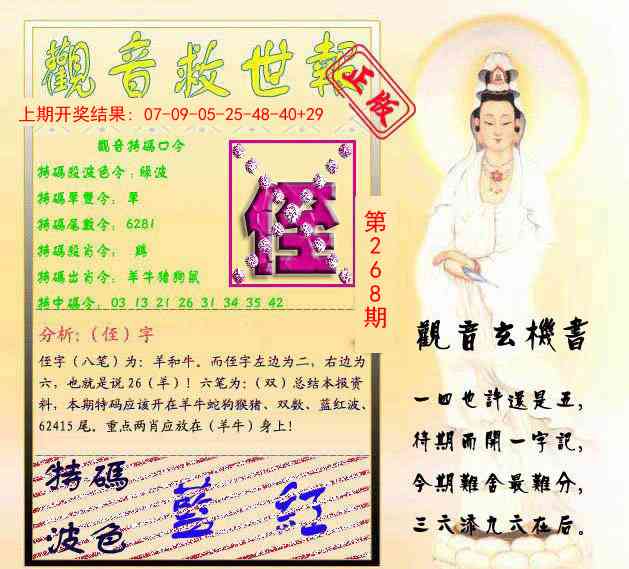 觀音救世報
正版
上期开奖结果：07-09-05-25-48-40+29
觀音特碼口令
特碼殺波色令：綠波
特碼單雙令：單
特碼尾數令：6281
特碼殺肖令：鷄
特碼出肖令：羊牛猪狗鼠
特中碼令：03 13 21 26 31 34 35 42
侄
第268期
分析:（侄）字
侄字（八笔）为：羊和牛。而侄字左边为二，右边为
六，也就是说26（羊）！六笔为：（双）总结本报资
料，本期特码应该开在羊牛蛇狗猴猪、双数、蓝红波、
62415尾。重点两肖应放在（羊牛）身上！
特碼
波色
藍 紅
觀音玄機書
一四也許還是五，
待期而開一字記，
今期難舍最難分，
三六添九六在后。